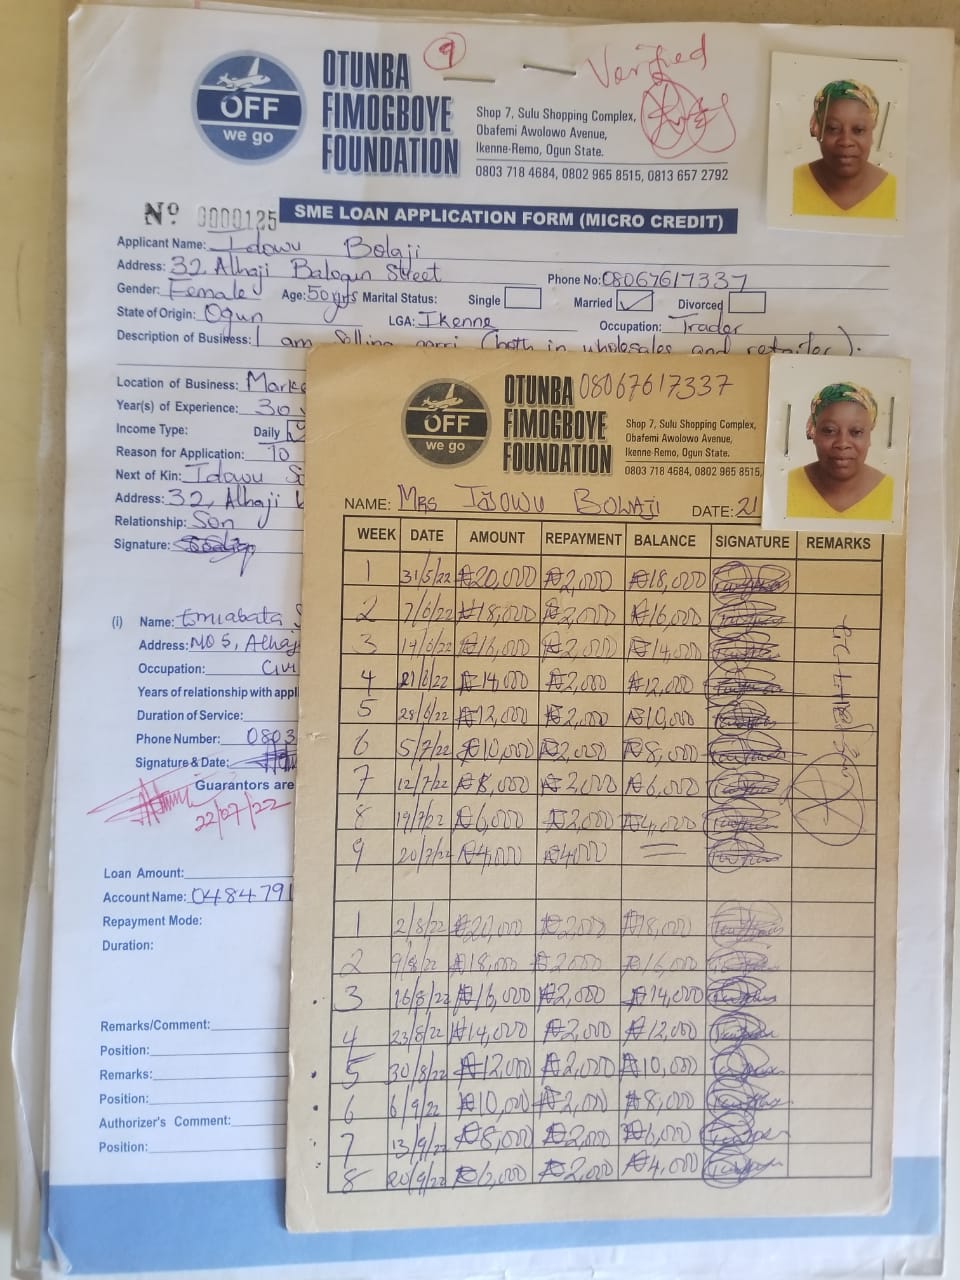 OTUNBA
FIMOGBOYE
FOUNDATION
OFF
we go
9
Verified
Shop 7, Sulu Shopping Complex,
Obafemi Awolowo Avenue,
Ikenne-Remo, Ogun State.
0803 718 4684, 0802 965 8515, 0813 657 2792
Nº 0000125
SME LOAN APPLICATION FORM (MICRO CREDIT)
Applicant Name: Idowu Bolaji
Address: 32, Alhaji Balogun Street Phone No: 08067617337
Gender: Female Age: 50yrs Marital Status: Single Married ✓ Divorced
State of Origin: Ogun LGA: Ikenne Occupation: Trader
Description of Business: I am Selling garri (both in wholesales and retailer).
Location of Business: Marke
Year(s) of Experience: 30
Income Type: Daily
Reason for Application: To
Next of Kin: Idowu
Address: 32, Alhaji
Relationship: Son
Signature:
(i) Name:
Address: NO 5, Alhaj
Occupation: Civi
Years of relationship with appl
Duration of Service:
Phone Number: 0803
Signature & Date:
Guarantors are
22/07/22
Loan Amount:
Account Name: 0484791
Repayment Mode:
Duration:
Remarks/Comment:
Position:
Remarks:
Position:
Authorizer's Comment:
Position:
OFF
we go
OTUNBA 08067617337
FIMOGBOYE
FOUNDATION
Shop 7, Sulu Shopping Complex,
Obafemi Awolowo Avenue,
Ikenne-Remo, Ogun State.
0803 718 4684, 0802 965 8515,
NAME: MRS IDOWU BOLAJI DATE: 21
WEEK DATE AMOUNT REPAYMENT BALANCE SIGNATURE REMARKS
1 31/5/22 ₦20,000 ₦2,000 ₦18,000
2 7/6/22 ₦18,000 ₦2,000 ₦16,000
3 14/6/22 ₦16,000 ₦2,000 ₦14,000
4 21/6/22 ₦14,000 ₦2,000 ₦12,000
5 28/6/22 ₦12,000 ₦2,000 ₦10,000
6 5/7/22 ₦10,000 ₦2,000 ₦8,000
7 12/7/22 ₦8,000 ₦2,000 ₦6,000
8 19/7/22 ₦6,000 ₦2,000 ₦4,000
9 20/7/22 ₦4,000 ₦4,000
1 2/8/22 ₦20,000 ₦2,000 ₦18,000
2 9/8/22 ₦18,000 ₦2000 ₦16,000
3 16/8/22 ₦16,000 ₦2,000 ₦14,000
4 23/8/22 ₦14,000 ₦2,000 ₦12,000
5 30/8/22 ₦12,000 ₦2,000 ₦10,000
6 6/9/22 ₦10,000 ₦2,000 ₦8,000
7 13/9/22 ₦8,000 ₦2,000 ₦6,000
8 20/9/22 ₦6,000 ₦2,000 ₦4,000